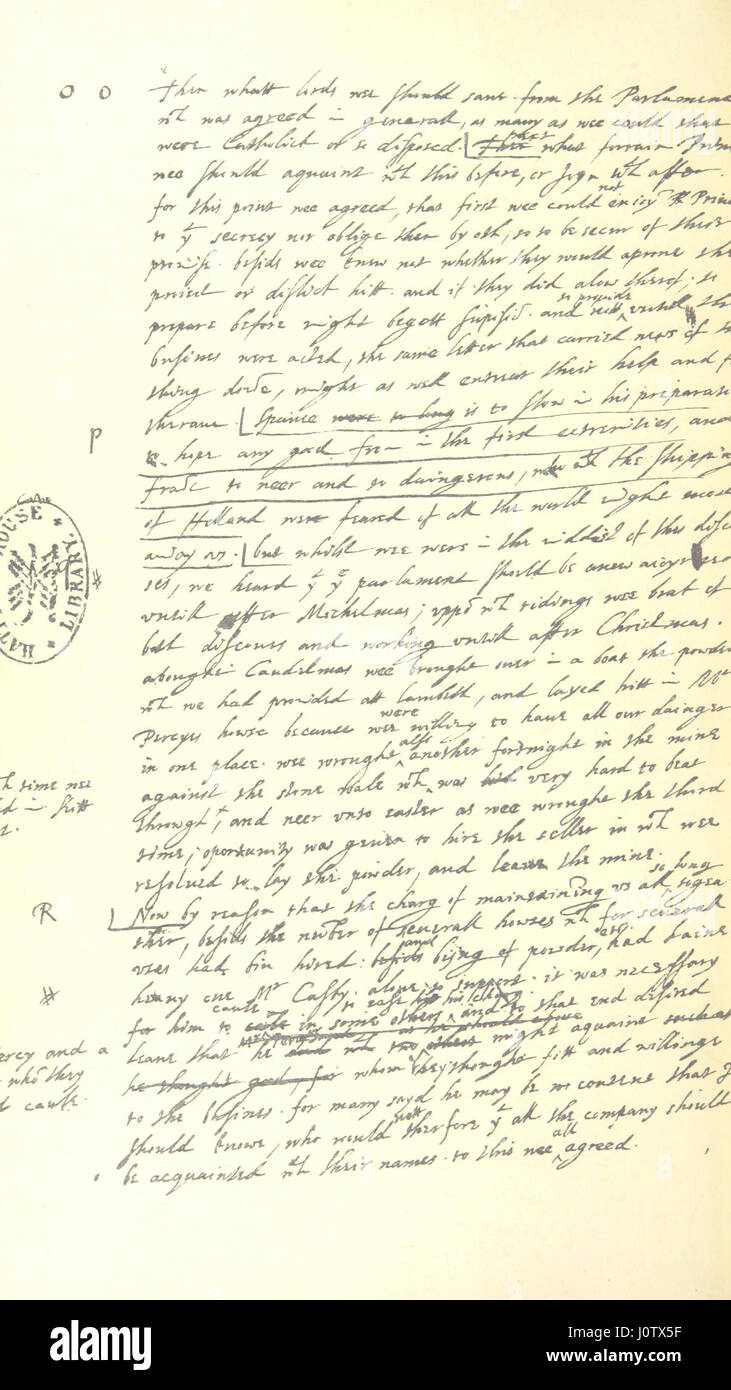 O O
Then whatt lords wee should save from the Parlament
wch was agreed in generall, as many as wee could that
were Catholick or so disposed. next what forrain Princ
wee should aquaint wth this before, or Joyn wth after
for this point wee agreed, that first wee could not enjoyn Princ
to yt secrecy nor oblige them by oth, so to be secur of their
promise. besids wee knew not whether they would aprove the
project or dislick hitt. and if they did alow therof, to
prepare before might begett suspisio. and so provide untill the
busines were acted, the same letter that carried news of the
thing done, might as well entreat their help and
therance. Spaine is to slow in his preparati
hope any good from in the first extremities, and
P
France to neer and so daingerous, who wth the shipping
of Holland were feared of all the world might make
away us. but whilst wee were in the middest of this discou
Caths
HOUSE
LIBRARY
HAT
ses, we heard yt ye parlament should be anew
untill after Michelmas; uppon wch tidings wee brak of
bott discours and working untill after Christmas.
abought Candelmas wee brought over in a boat the powder
wch we had provided att lambeth, and layed hitt in Mr
Percyes howse because wee were willing to have all our dainger
in one place. wee wrought also another fortnight in the mine
against the stone wale wch was very hard to beat
through, and neer unto easter as wee wrought the third
time, oportunity was geven to hire the celler in wch wee
resolved to lay the powder, and leave the mine.
R
Now by reason that the charg of maintaining us all so long togea
ther, besids the number of severall howses wch for severall
uses had bin hired: and bijng of powder, etc. had laine
heavy one Mr Catsby alone to support. it was necessary
for him to cause in some others to ease his charg and to that end desired
leave that he might aquaint
whom they thought fitt and willinge
to the busines. for many sayd he may be no contence that I
should knowe, who would nott therfore yt all the company should
be acquainted wth their names. to this wee all agreed.
th time nee
d in
ercy and a
whō they
cause
alamy
a
J0TX5F
alamy stock photo